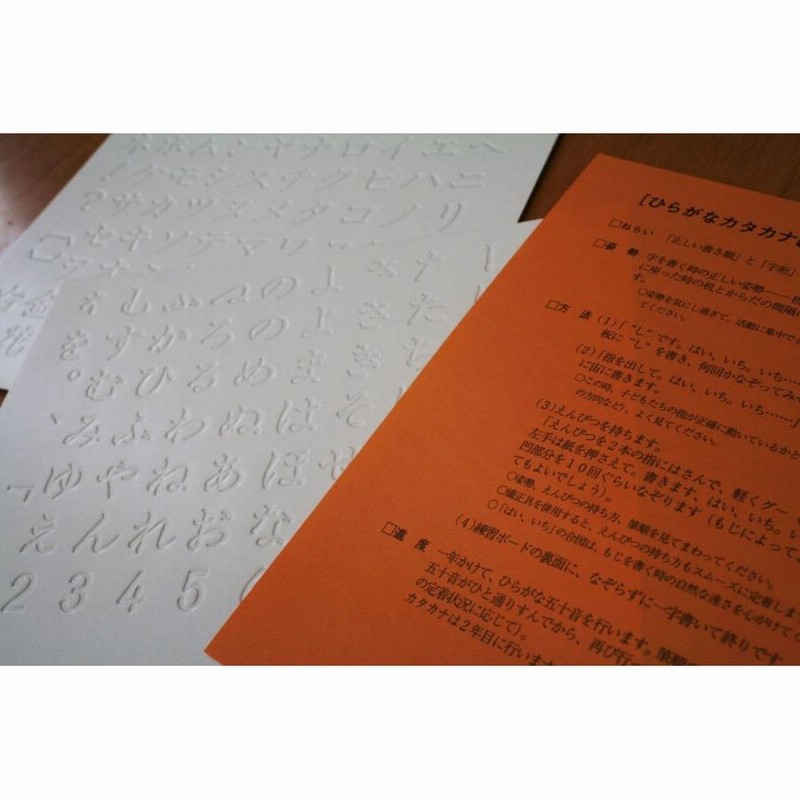 ホムヘンヤナロイエヘ
ケモシスサクヒハニ
?サカツヌメタコノリ
セキソテマワ
よのゐふむ
たきよのろかす
ちさまめるひむ
そはぬわふみ
せほあねやゆ
なおれんえ
2 3 4 5
[ひらがなカタカナ
□ねらい 「正しい書き順」と「字形」
□姿 勢 字を書く時の正しい姿勢――
に座った時の机とからだの間隔
す。
○姿勢を気にし過ぎて、活動に集中で
てください。
□方 法 (1)「“し”です。はい、いち。いち……
板に“し”を書き、何回かなぞってみ
(2)「指を出して。はい、いち。いち……」
に宙に書きます。
○この時、子どもたちの指が正確に動いているかど
の方向など)、よく見てください。
(3)えんぴつを持ちます。
「えんぴつを2本の指にはさんで、軽くグー
左手は紙を押さえて。書きます。はい、いち。い
凹部分を10回ぐらいなぞります(もじによって
てもよいでしょう)。
○姿勢、えんぴつの持ち方、筆順を見てまわってください。
○矯正具を併用すると、えんぴつの持ち方もスムーズに定着しま
○「はい、いち」の合図は、もじを書く時の自然な速さを心がけてく
(4)練習ボードの裏面に、なぞらずに一字書いて終りです
□進 度 一年かけて、ひらがな五十音を行います。筆順
五十音がひと通りすんでから、再び行
の定着状況に応じて)。
カタカナは2年目に行います